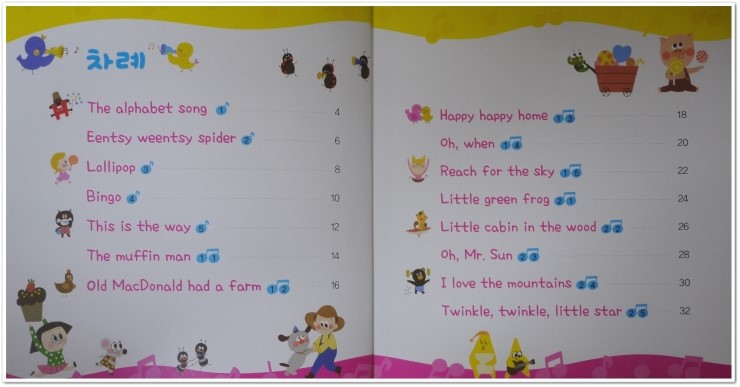 차례
The alphabet song 1 4
Eentsy weentsy spider 2 6
Lollipop 3 8
Bingo 4 10
This is the way 5 12
The muffin man 1 1 14
Old MacDonald had a farm 1 2 16
Happy happy home 1 3 18
Oh, when 1 4 20
Reach for the sky 1 5 22
Little green frog 2 1 24
Little cabin in the wood 2 2 26
Oh, Mr. Sun 2 3 28
I love the mountains 2 4 30
Twinkle, twinkle, little star 2 5 32